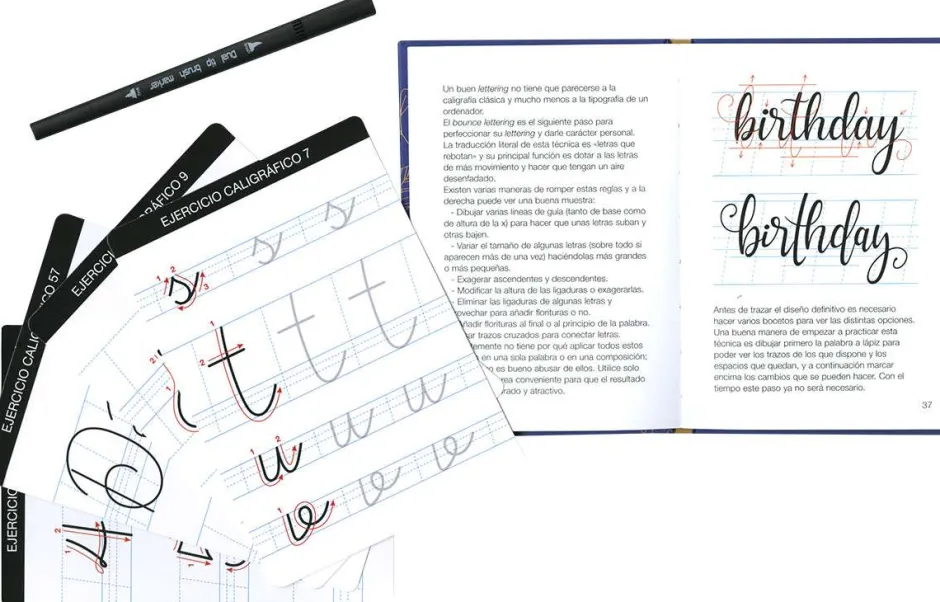 Dual tip brush marker
EJERCICIO CALIGRÁFICO 7
EJERCICIO CALIGRÁFICO 9
EJERCICIO CALI
57
EJERCICIO
s s s
t t t
u u u
Un buen lettering no tiene que parecerse a la
caligrafía clásica y mucho menos a la tipografía de un
ordenador.
El bounce lettering es el siguiente paso para
perfeccionar su lettering y darle carácter personal.
La traducción literal de esta técnica es «letras que
rebotan» y su principal función es dotar a las letras
de más movimiento y hacer que tengan un aire
desenfadado.
Existen varias maneras de romper estas reglas y a la
derecha puede ver una buena muestra:
- Dibujar varias líneas de guía (tanto de base como
de altura de la x) para hacer que unas letras suban y
otras bajen.
- Variar el tamaño de algunas letras (sobre todo si
aparecen más de una vez) haciéndolas más grandes
o más pequeñas.
- Exagerar ascendentes y descendentes.
- Modificar la altura de las ligaduras o exagerarlas.
- Eliminar las ligaduras de algunas letras y
provechar para añadir florituras o no.
ñadir florituras al final o al principio de la palabra.
ar trazos cruzados para conectar letras.
lemente no tiene por qué aplicar todos estos
en una sola palabra o en una composición;
o es bueno abusar de ellos. Utilice solo
rea conveniente para que el resultado
rado y atractivo.
birthday
birthday
Antes de trazar el diseño definitivo es necesario
hacer varios bocetos para ver las distintas opciones.
Una buena manera de empezar a practicar esta
técnica es dibujar primero la palabra a lápiz para
poder ver los trazos de los que dispone y los
espacios que quedan, y a continuación marcar
encima los cambios que se pueden hacer. Con el
tiempo este paso ya no será necesario.
37